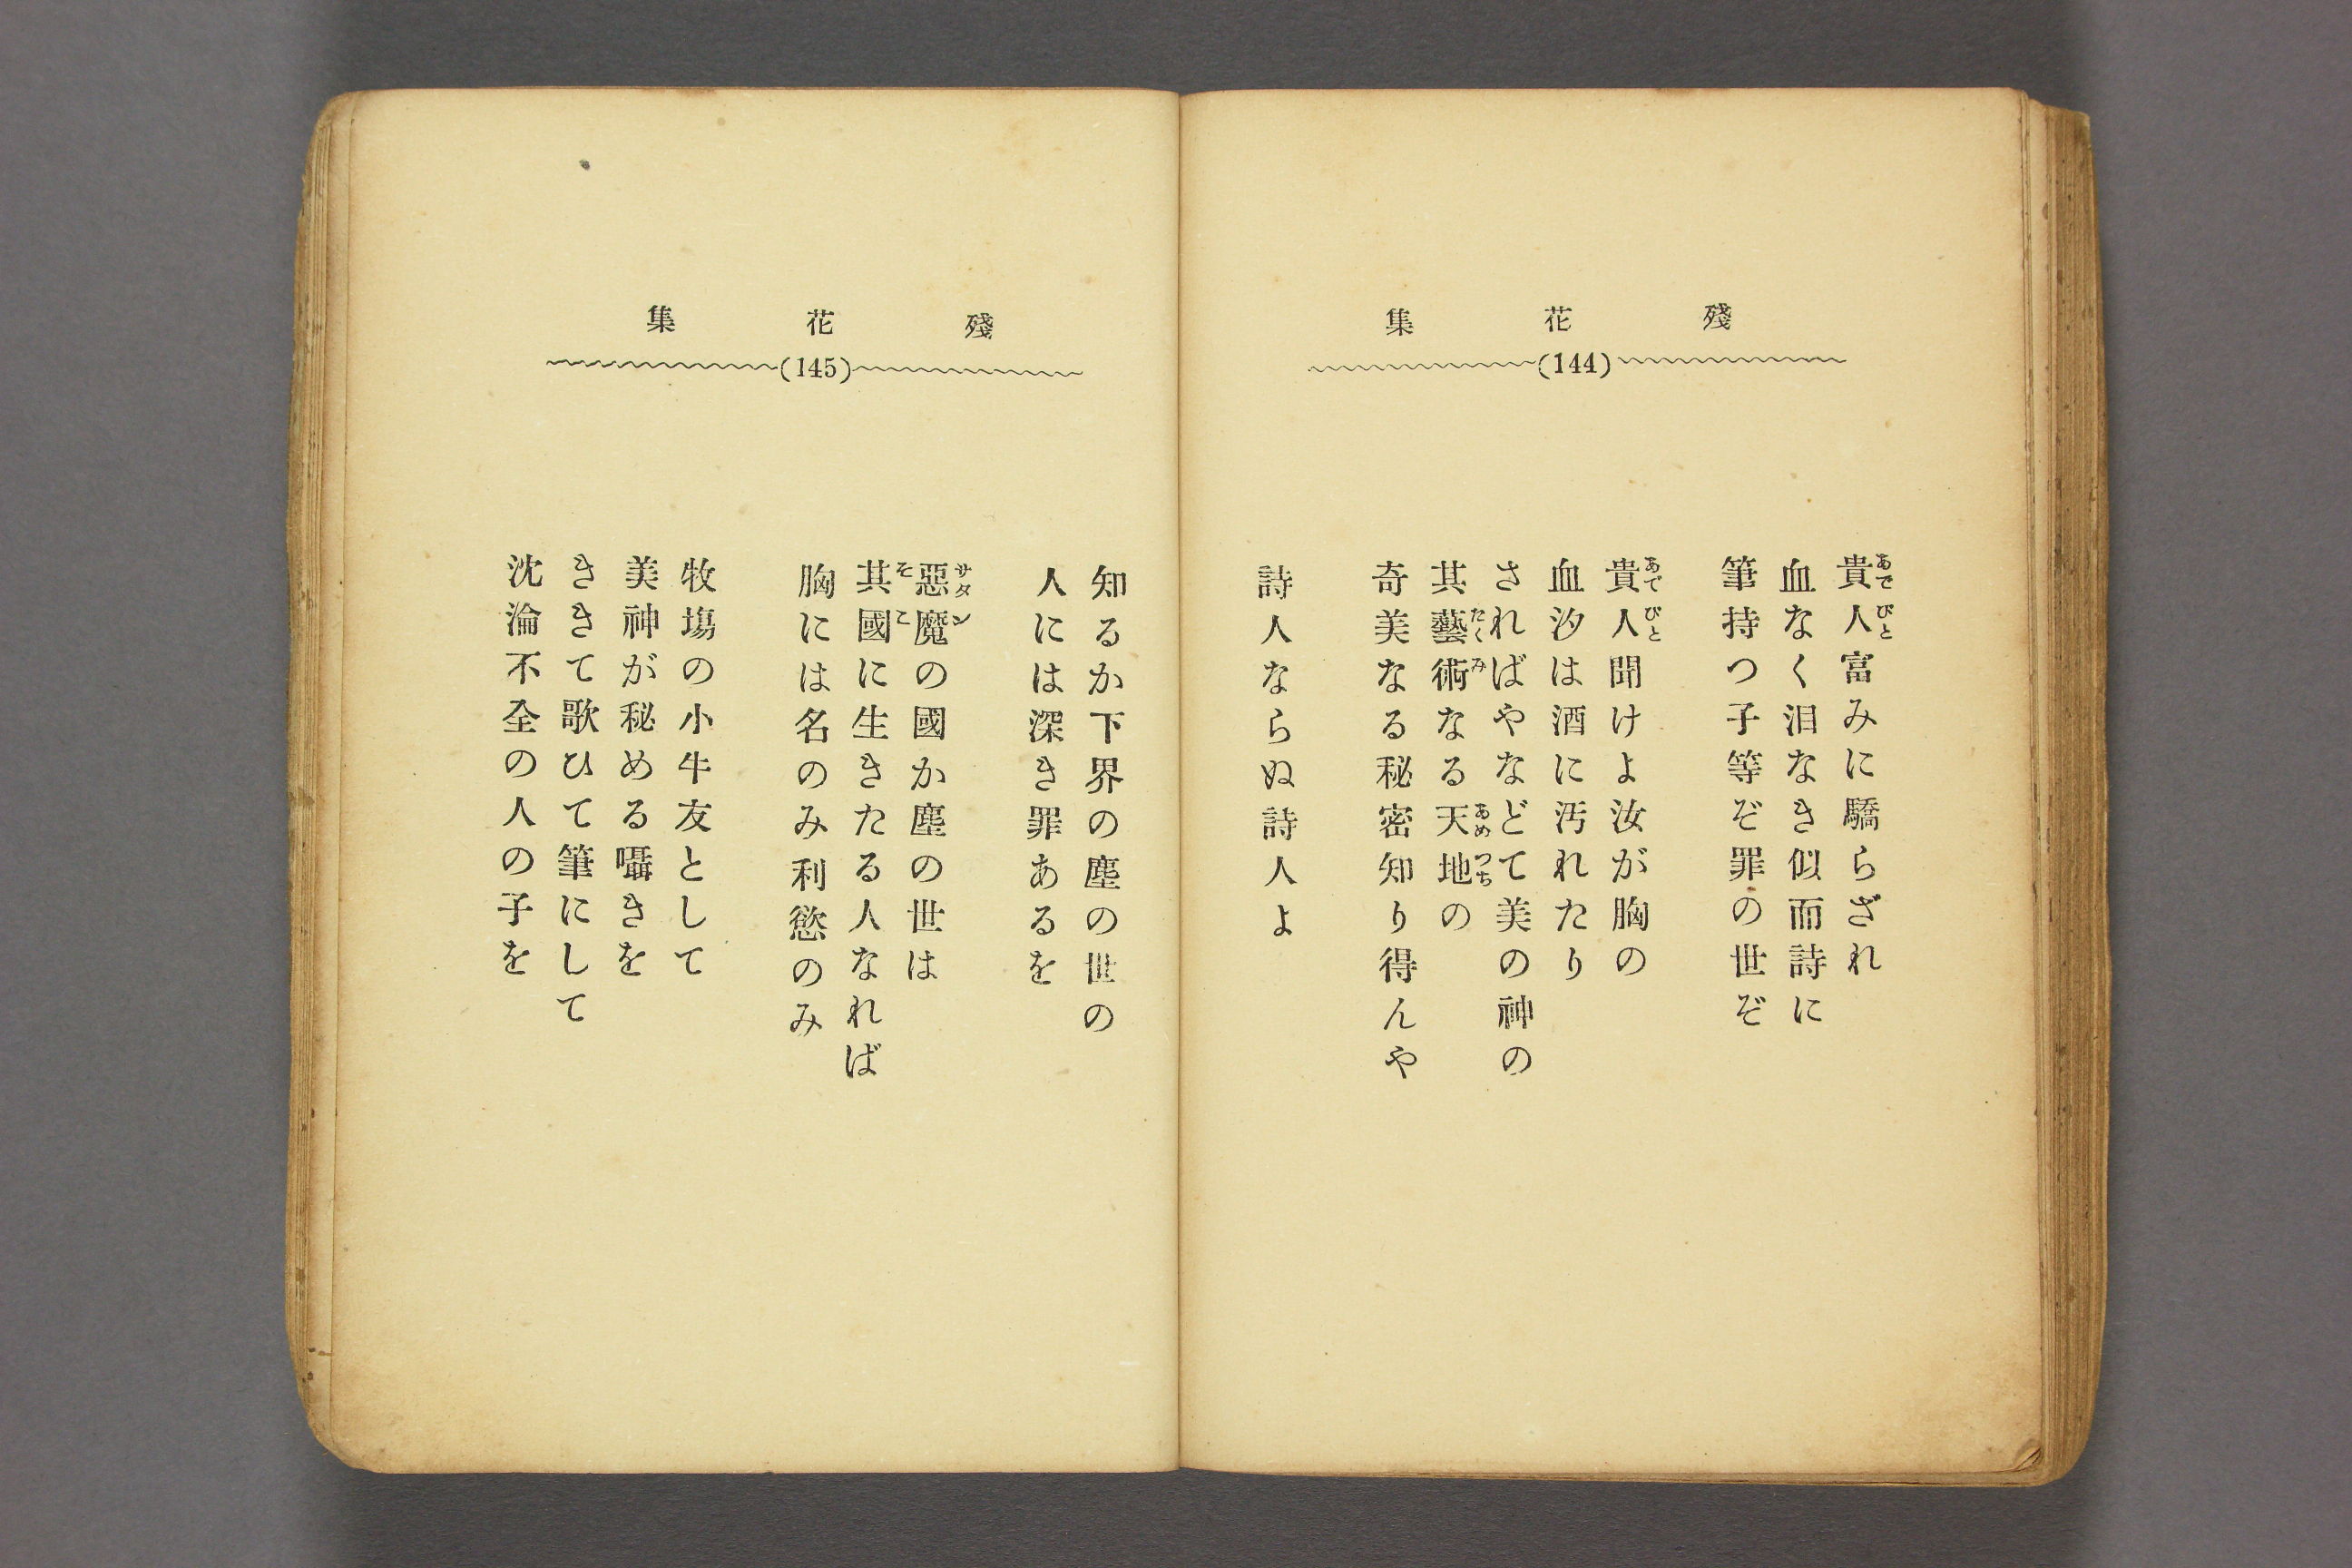 殘花集
(144)
貴人富みに驕らざれ
血なく泪なき似而詩に
筆持つ子等ぞ罪の世ぞ
貴人聞けよ汝が胸の
血汐は酒に汚れたり
さればやなどて美の神の
其藝術なる天地の
奇美なる秘密知り得んや
詩人ならぬ詩人よ
殘花集
(145)
知るか下界の塵の世の
人には深き罪あるを
惡魔の國か塵の世は
其國に生きたる人なれば
胸には名のみ利慾のみ
牧塲の小牛友として
美神が秘める囁きを
ききて歌ひて筆にして
沈淪不全の人の子を